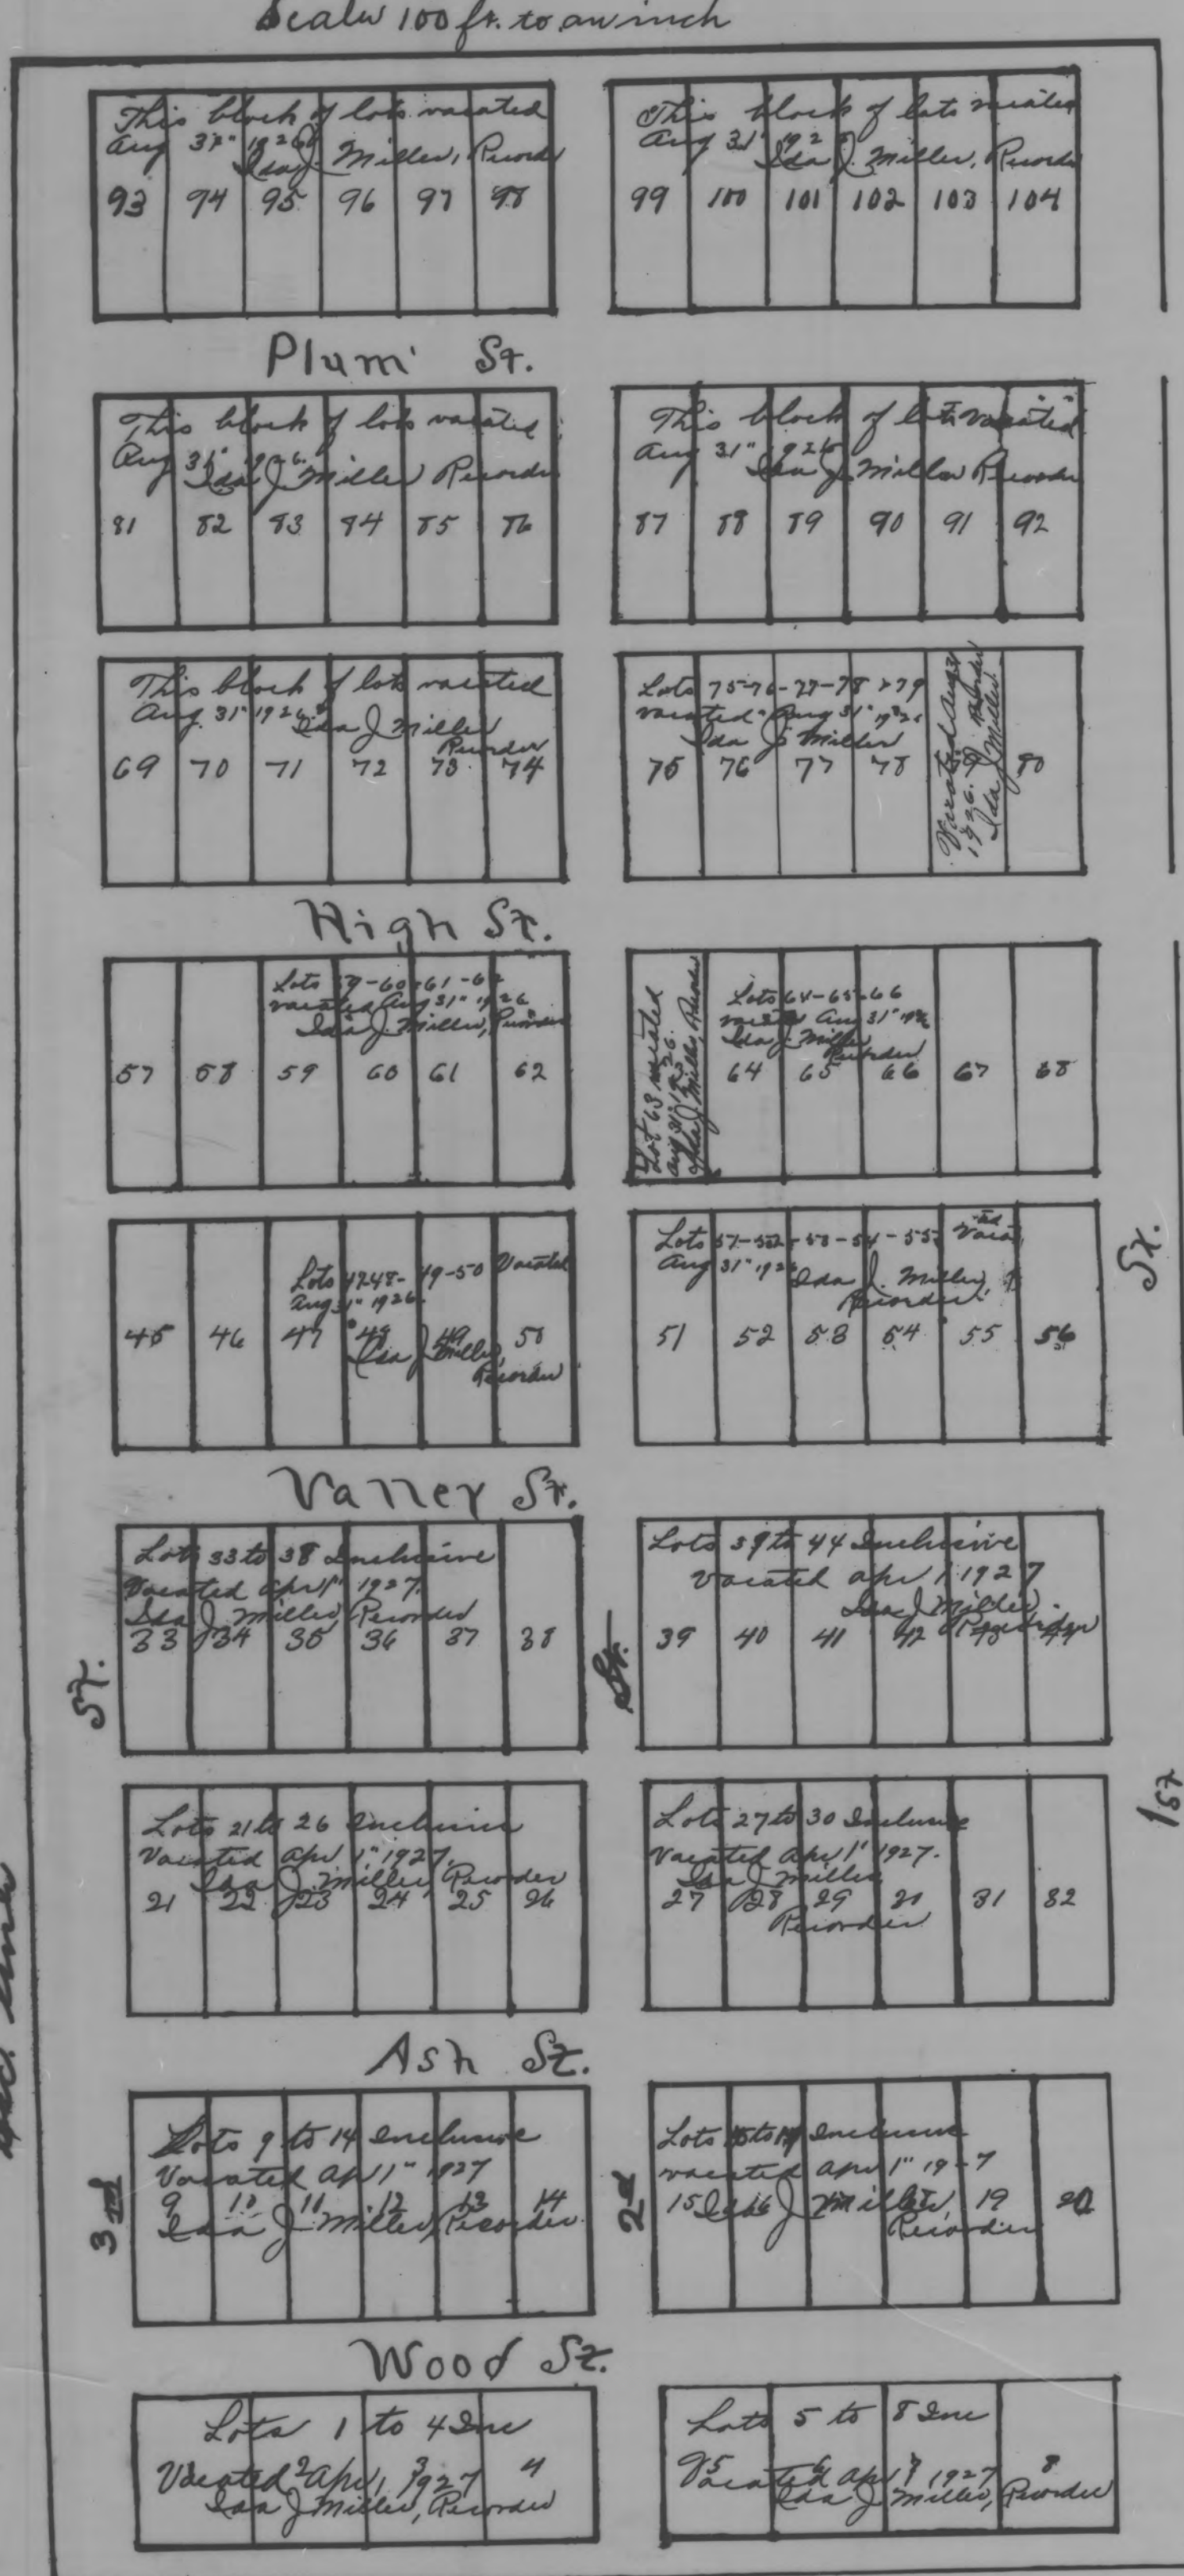 Scale 100 ft. to an inch
This block of lots vacated
Aug 31" 1926
Ida J. Miller, Recorder
93 94 95 96 97 98
This block of lots vacated
Aug 31 192
Ida J. Miller, Recorder
99 100 101 102 103 104
Plum St.
This block of lots vacated
Aug 31" 1926.
Ida J. Miller Recorder
81 82 83 84 85 86
This block of lots vacated
Aug 31" 1926
Ida J. Miller Recorder
87 88 89 90 91 92
This block of lots vacated
Aug. 31" 1926.
Ida J Miller
Recorder
69 70 71 72 73 74
Lots 75-76-77-78 & 79
vacated Aug 31" 1926
Ida J Miller
75 76 77 78 80
Vacated Aug 31
1926. Recorder
Ida J Miller.
High St.
Lots 59-60-61-62
vacated Aug 31" 1926
Ida J. Miller, Recorder
57 58 59 60 61 62
Lot 63 vacated
Aug 31, 1926.
Ida J Miller, Recorder
Lots 64-65-66
vacated Aug 31" 1926
Ida J. Miller
Recorder
64 65 66 67 68
Lots 47 48-49-50 Vacated
Aug 31" 1926.
45 46 47 48 49 50
Ida J Miller,
Recorder
Lots 51-52-53-54-55 Vacated
Aug 31" 1926
Ida J. Miller,
Recorder.
51 52 53 54 55 56
St.
Valley St.
Lots 33 to 38 Inclusive
Vacated Apr 1" 1927.
Ida J. Miller, Recorder
33 34 35 36 37 38
Lots 39 to 44 Inclusive
Vacated Apr 1 1927
Ida J Miller.
Recorder
39 40 41 42 43 44
St.
St.
Lots 21 to 26 Inclusive
Vacated Apr 1" 1927.
Ida J. Miller, Recorder
21 22 23 24 25 26
Lots 27 to 30 Inclusive
Vacated Apr 1" 1927.
Ida J Miller
27 28 29 30 31 32
Recorder
1st
Ash St.
Lots 9 to 14 Inclusive
Vacated Apr 1" 1927
9 10 11 12 13 14
Ida J. Miller, Recorder
Lots 15 to 19 Inclusive
vacated Apr 1" 19-7
15 16 19 20
Ida J Miller,
Recorder
3rd
2nd
Wood St.
Lots 1 to 4 Inc
2 3 4
Vacated Apr 1, 1927
Ida J Miller, Recorder
Lots 5 to 8 Inc
5 6 7 8
Vacated Apr 1 1927
Ida J Miller, Recorder